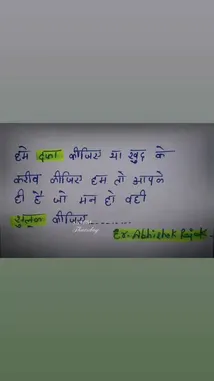 हमे दफा कीजिए या खुद के
करीब कीजिए हम तो आपके
ही हैं जो मन हो वही
सुलूक कीजिए..........
Thursday
Er. Abhishek Rajak